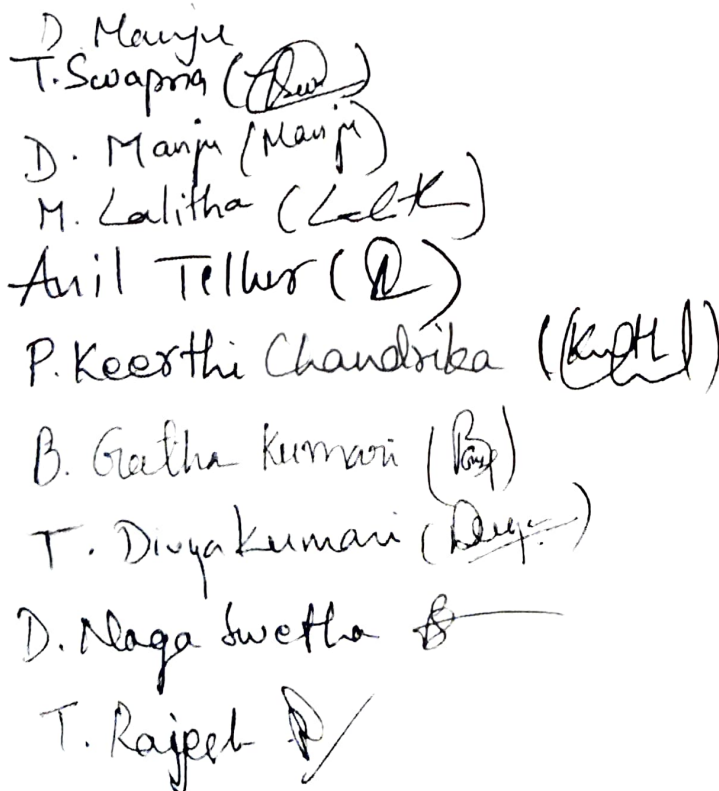 D. Manju
T. Swapna
D. Manju (Manju)
M. Lalitha
Anil Tellur
P. Keerthi Chandrika
B. Geetha Kumari
T. Divya Kumari
D. Naga Swetha
T. Rajeeb